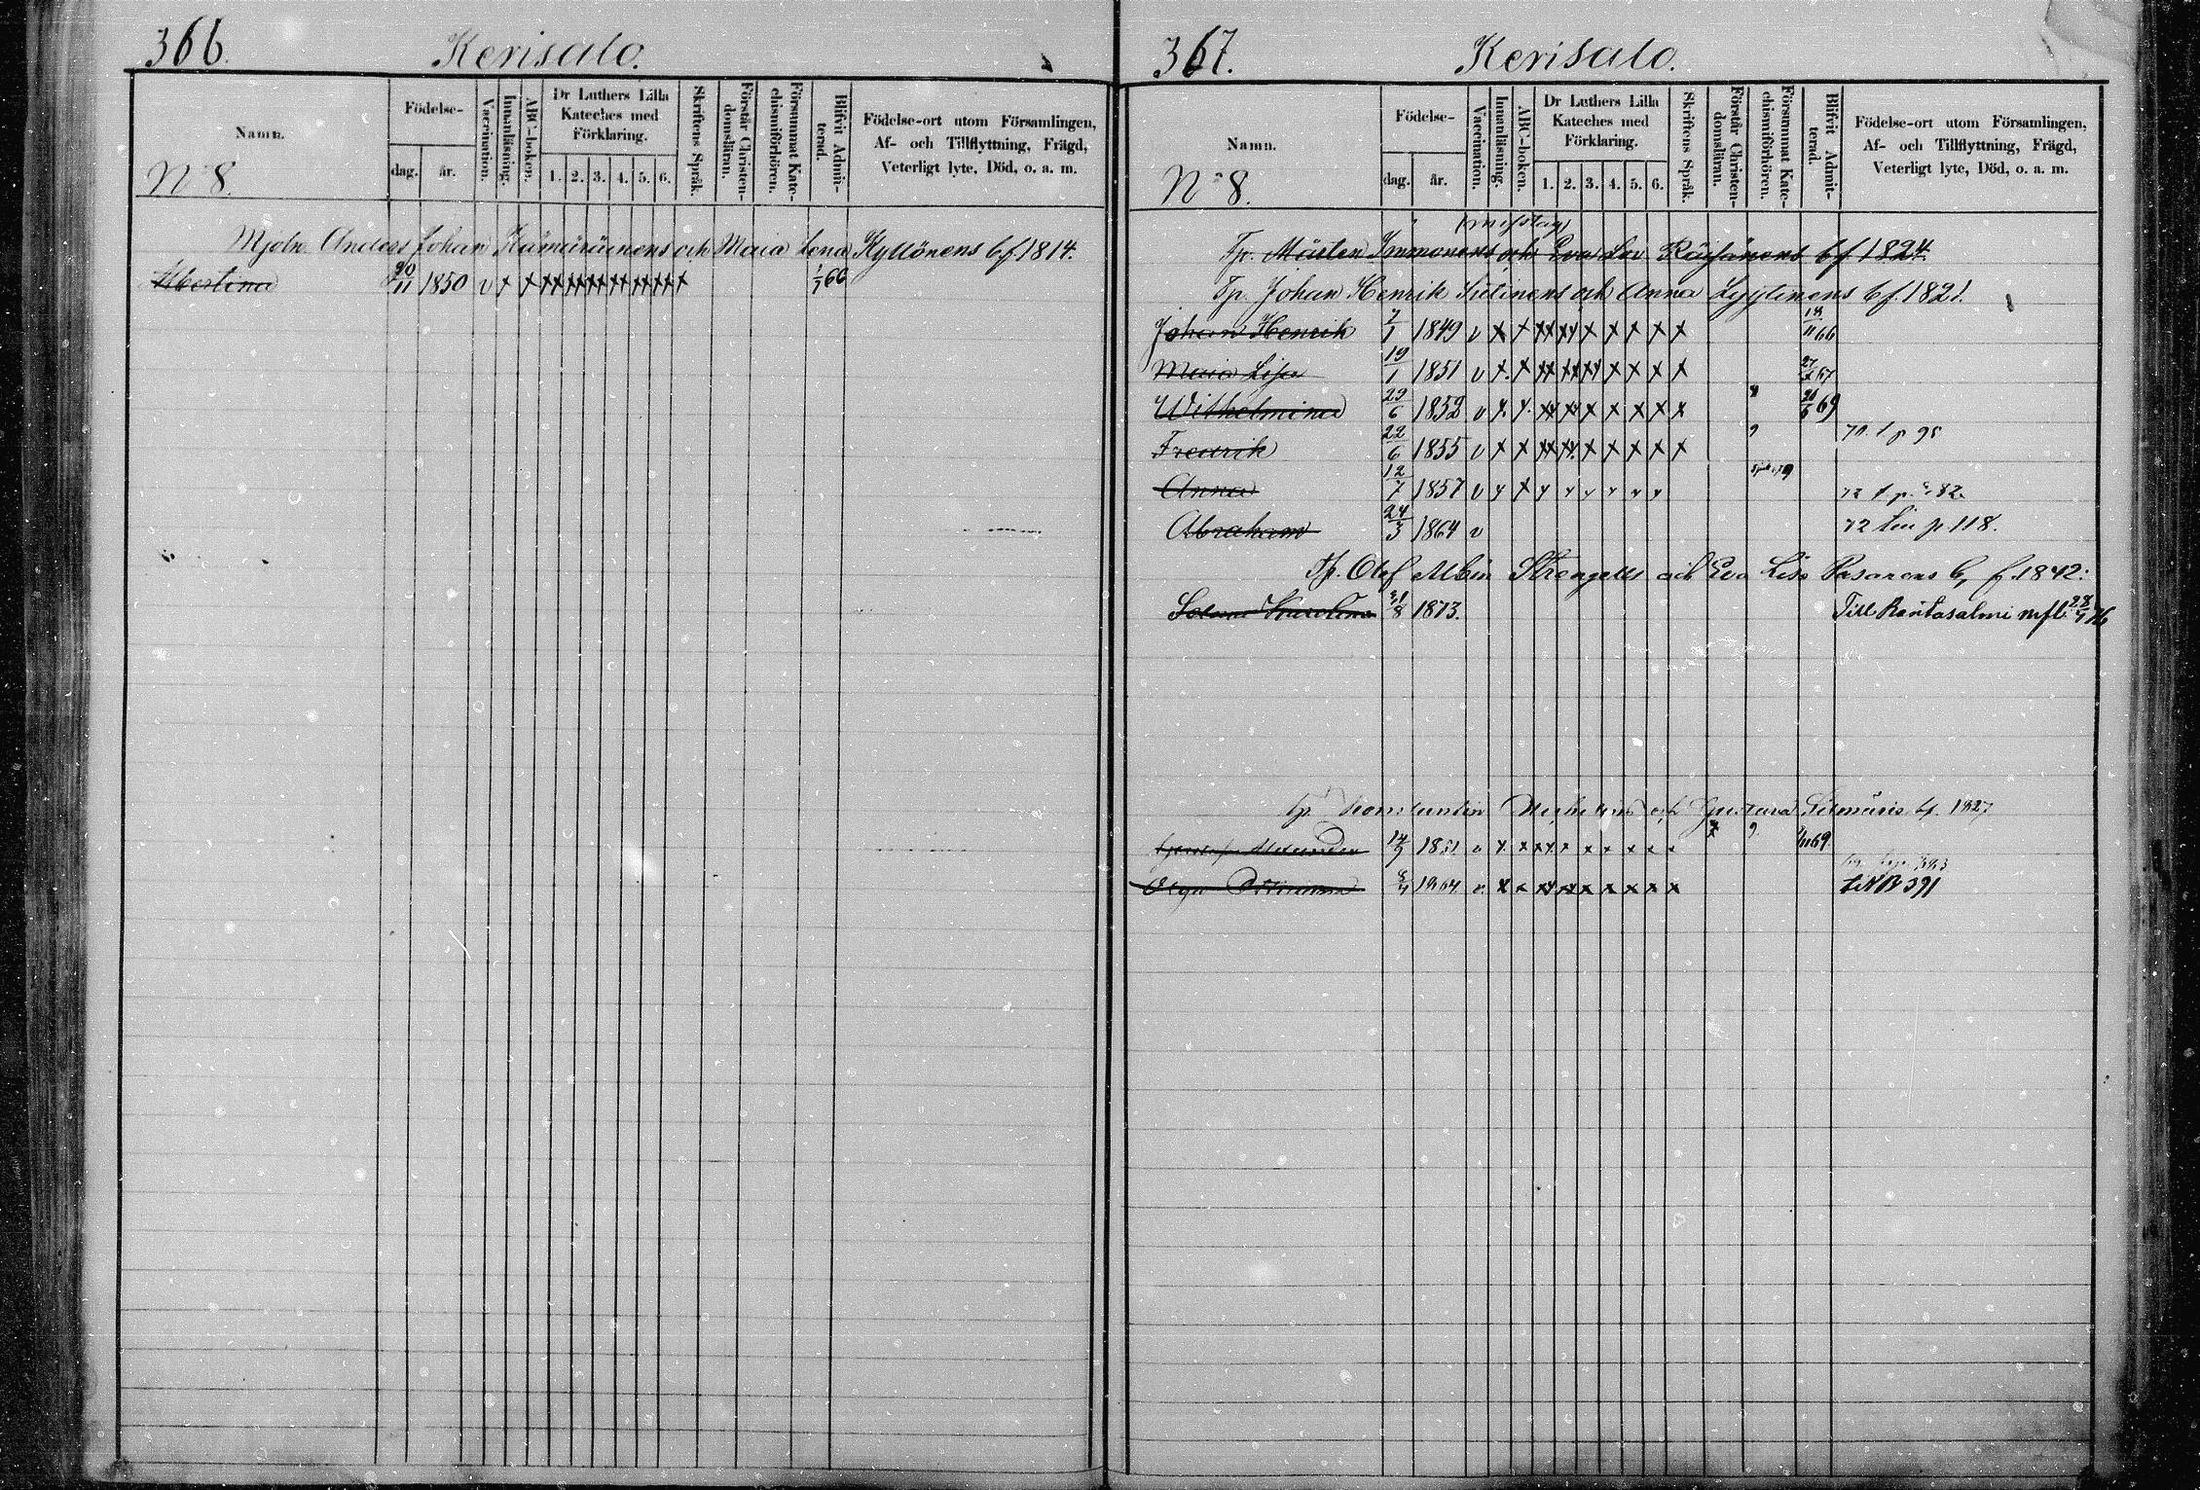 366. Kerisalo.
Namn.
N:o 8.
Födelse-
dag. år.
Vaccination.
Innanläsning.
ABC-boken.
Dr Luthers Lilla Kateches med Förklaring.
1. 2. 3. 4. 5. 6.
Skriftens Språk.
Förstår Christendomsläran.
Försummat Katechismiförhören.
Blifvit Admitterad.
Födelse-ort utom Församlingen,
Af- och Tillflyttning, Frägd,
Veterligt lyte, Död, o. a. m.
Mjöln. Anders Johan Kämäräinens och Maia Lena Kyllönens b. f. 1814.
Albertina 20/11 1850 v x x xx xx xx xx xx xx x 1/7 66
367. Kerisalo.
Namn.
N:o 8.
Födelse-
dag. år.
Vaccination.
Innanläsning.
ABC-boken.
Dr Luthers Lilla Kateches med Förklaring.
1. 2. 3. 4. 5. 6.
Skriftens Språk.
Förstår Christendomsläran.
Försummat Katechismiförhören.
Blifvit Admitterad.
Födelse-ort utom Församlingen,
Af- och Tillflyttning, Frägd,
Veterligt lyte, Död, o. a. m.
(misstag)
Tp. Mårten Immonens och Eva Lov. Räisänens bf 1824.
Tp. Johan Henrik Sutinens och Anna Lyytinens b f. 1821.
Johan Henrik 7/1 1849 v x x xx xx x x x x x 18/11 66
Maia Lisa 19/1 1851 v x x xx xx xx x x x x 67
Wilhelmina 29/6 1852 v x x xx xx x x x x x 69
Fredrik 22/6 1855 v x x xx xx x x x x x 9 70. t p 98
Anna 12/7 1857 v x x x x x x x x 72 t p. 82.
Abraham 24/3 1864 v 72 p 118.
Tp. Olof Albin Strengells och Eva Lisa Pasanens b, f. 1842:
Karolina 1873. Till Rantasalmi mfl. 28/7 76
Tp. Konstantin och Gustava b f. 1827
Alexander 14/9 1851 v x x xx x x x x x x 9 69
Olga 1864 v x x xx xx x x x x x
Lit B 391